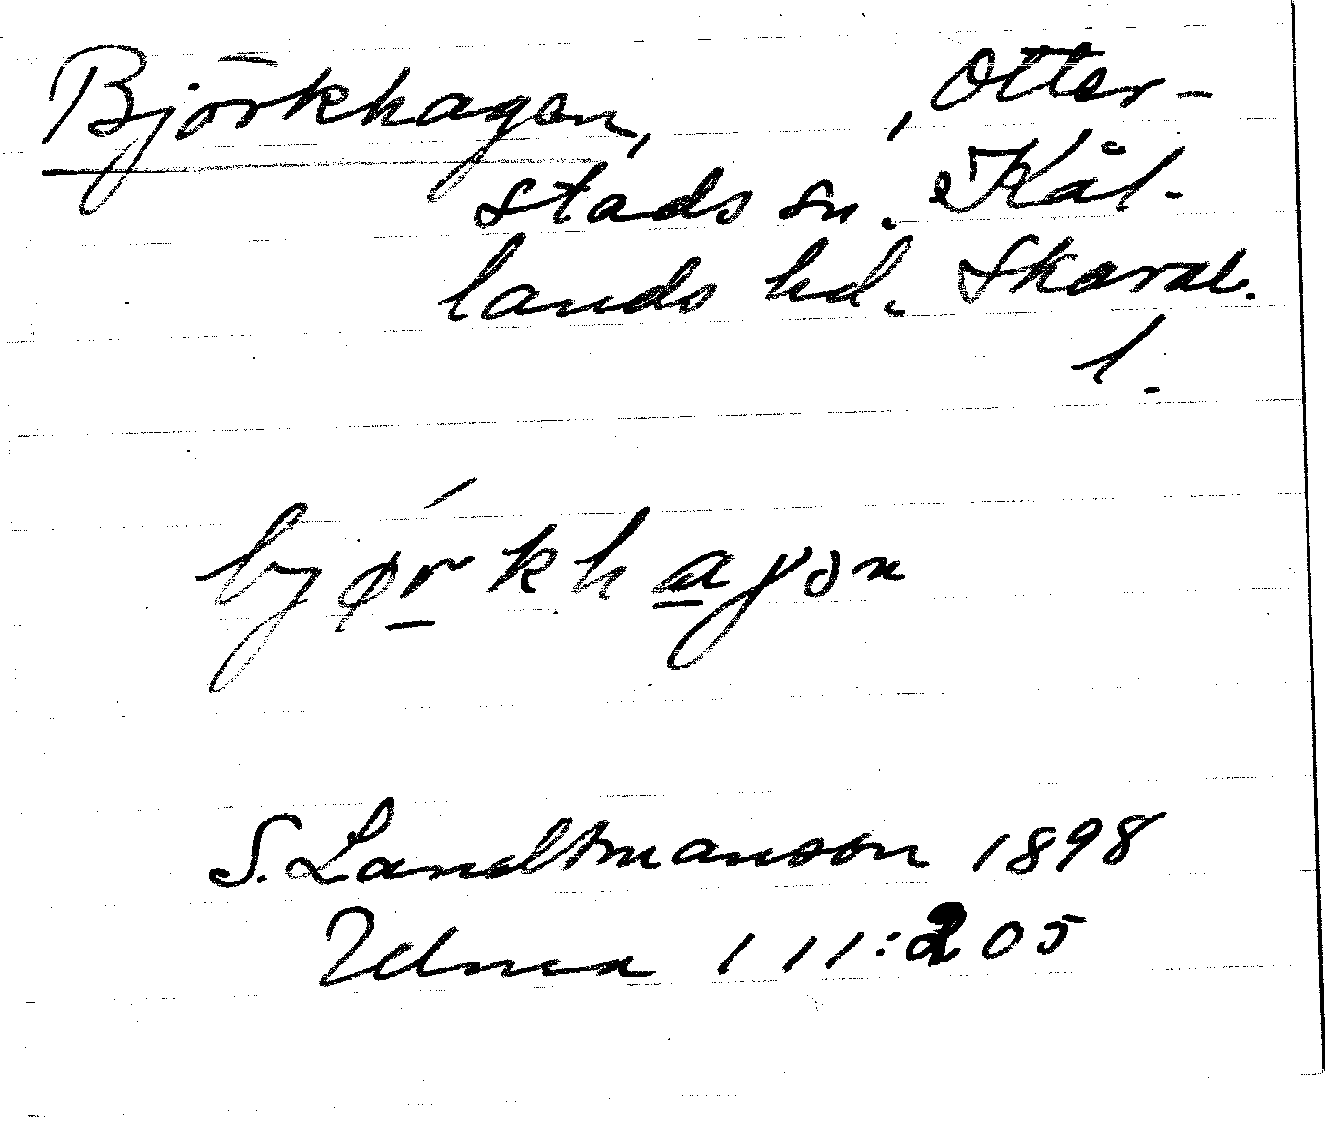 Björkhagen, , Otter-
stads sn. Kål-
lands hd. Skarab.
l.
bjørkhagən
S. Landtmanson 1898
Uma 111:205